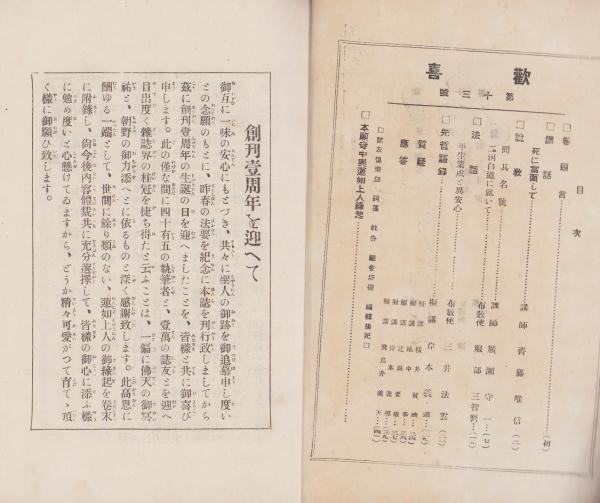 歡喜
第十三號
目次
□卷頭言……(初)
□講話
死に當面して……講師 齊藤唯信…(二)
□說教
聞其名號……講師 廣瀬守一…(七)
二河白道に就いて……布教使 服部三智麿…
□法話
平生業成と異安心……布教使 三井法雲…
□先哲語錄……擬講 岸本義導…
質疑
應答
□本願寺中興蓮如上人緣起……
創刊壹周年を迎へて
御互に一味の安心にもとづき、共々に聖人の御跡を御追慕申し度い
との念願のもとに、昨春の法要を紀念に本誌を刊行致しましてから
茲に創刊壹周年の生誕の日を迎へましたことを、皆樣と共に御喜び
申します。此の僅な間に四十有五の執筆者と、壹萬の誌友とを迎へ
目出度く雜誌界の桂冠を捷ち得たと云ふことは、一編に佛天の御冥
祐と、朝野の御力添へとに依るものと深く感謝致します。此高恩に
酬ゆる一端として、世間に餘り類のない、蓮如上人の御緣起を卷末
に附錄し、尙今後內容體裁共に充分選擇して、皆樣の御心に添ふ樣
に勉め度いと心懸けてゐますから、どうか精々可愛がつて育てゝ頂
く樣に御願ひ致します。